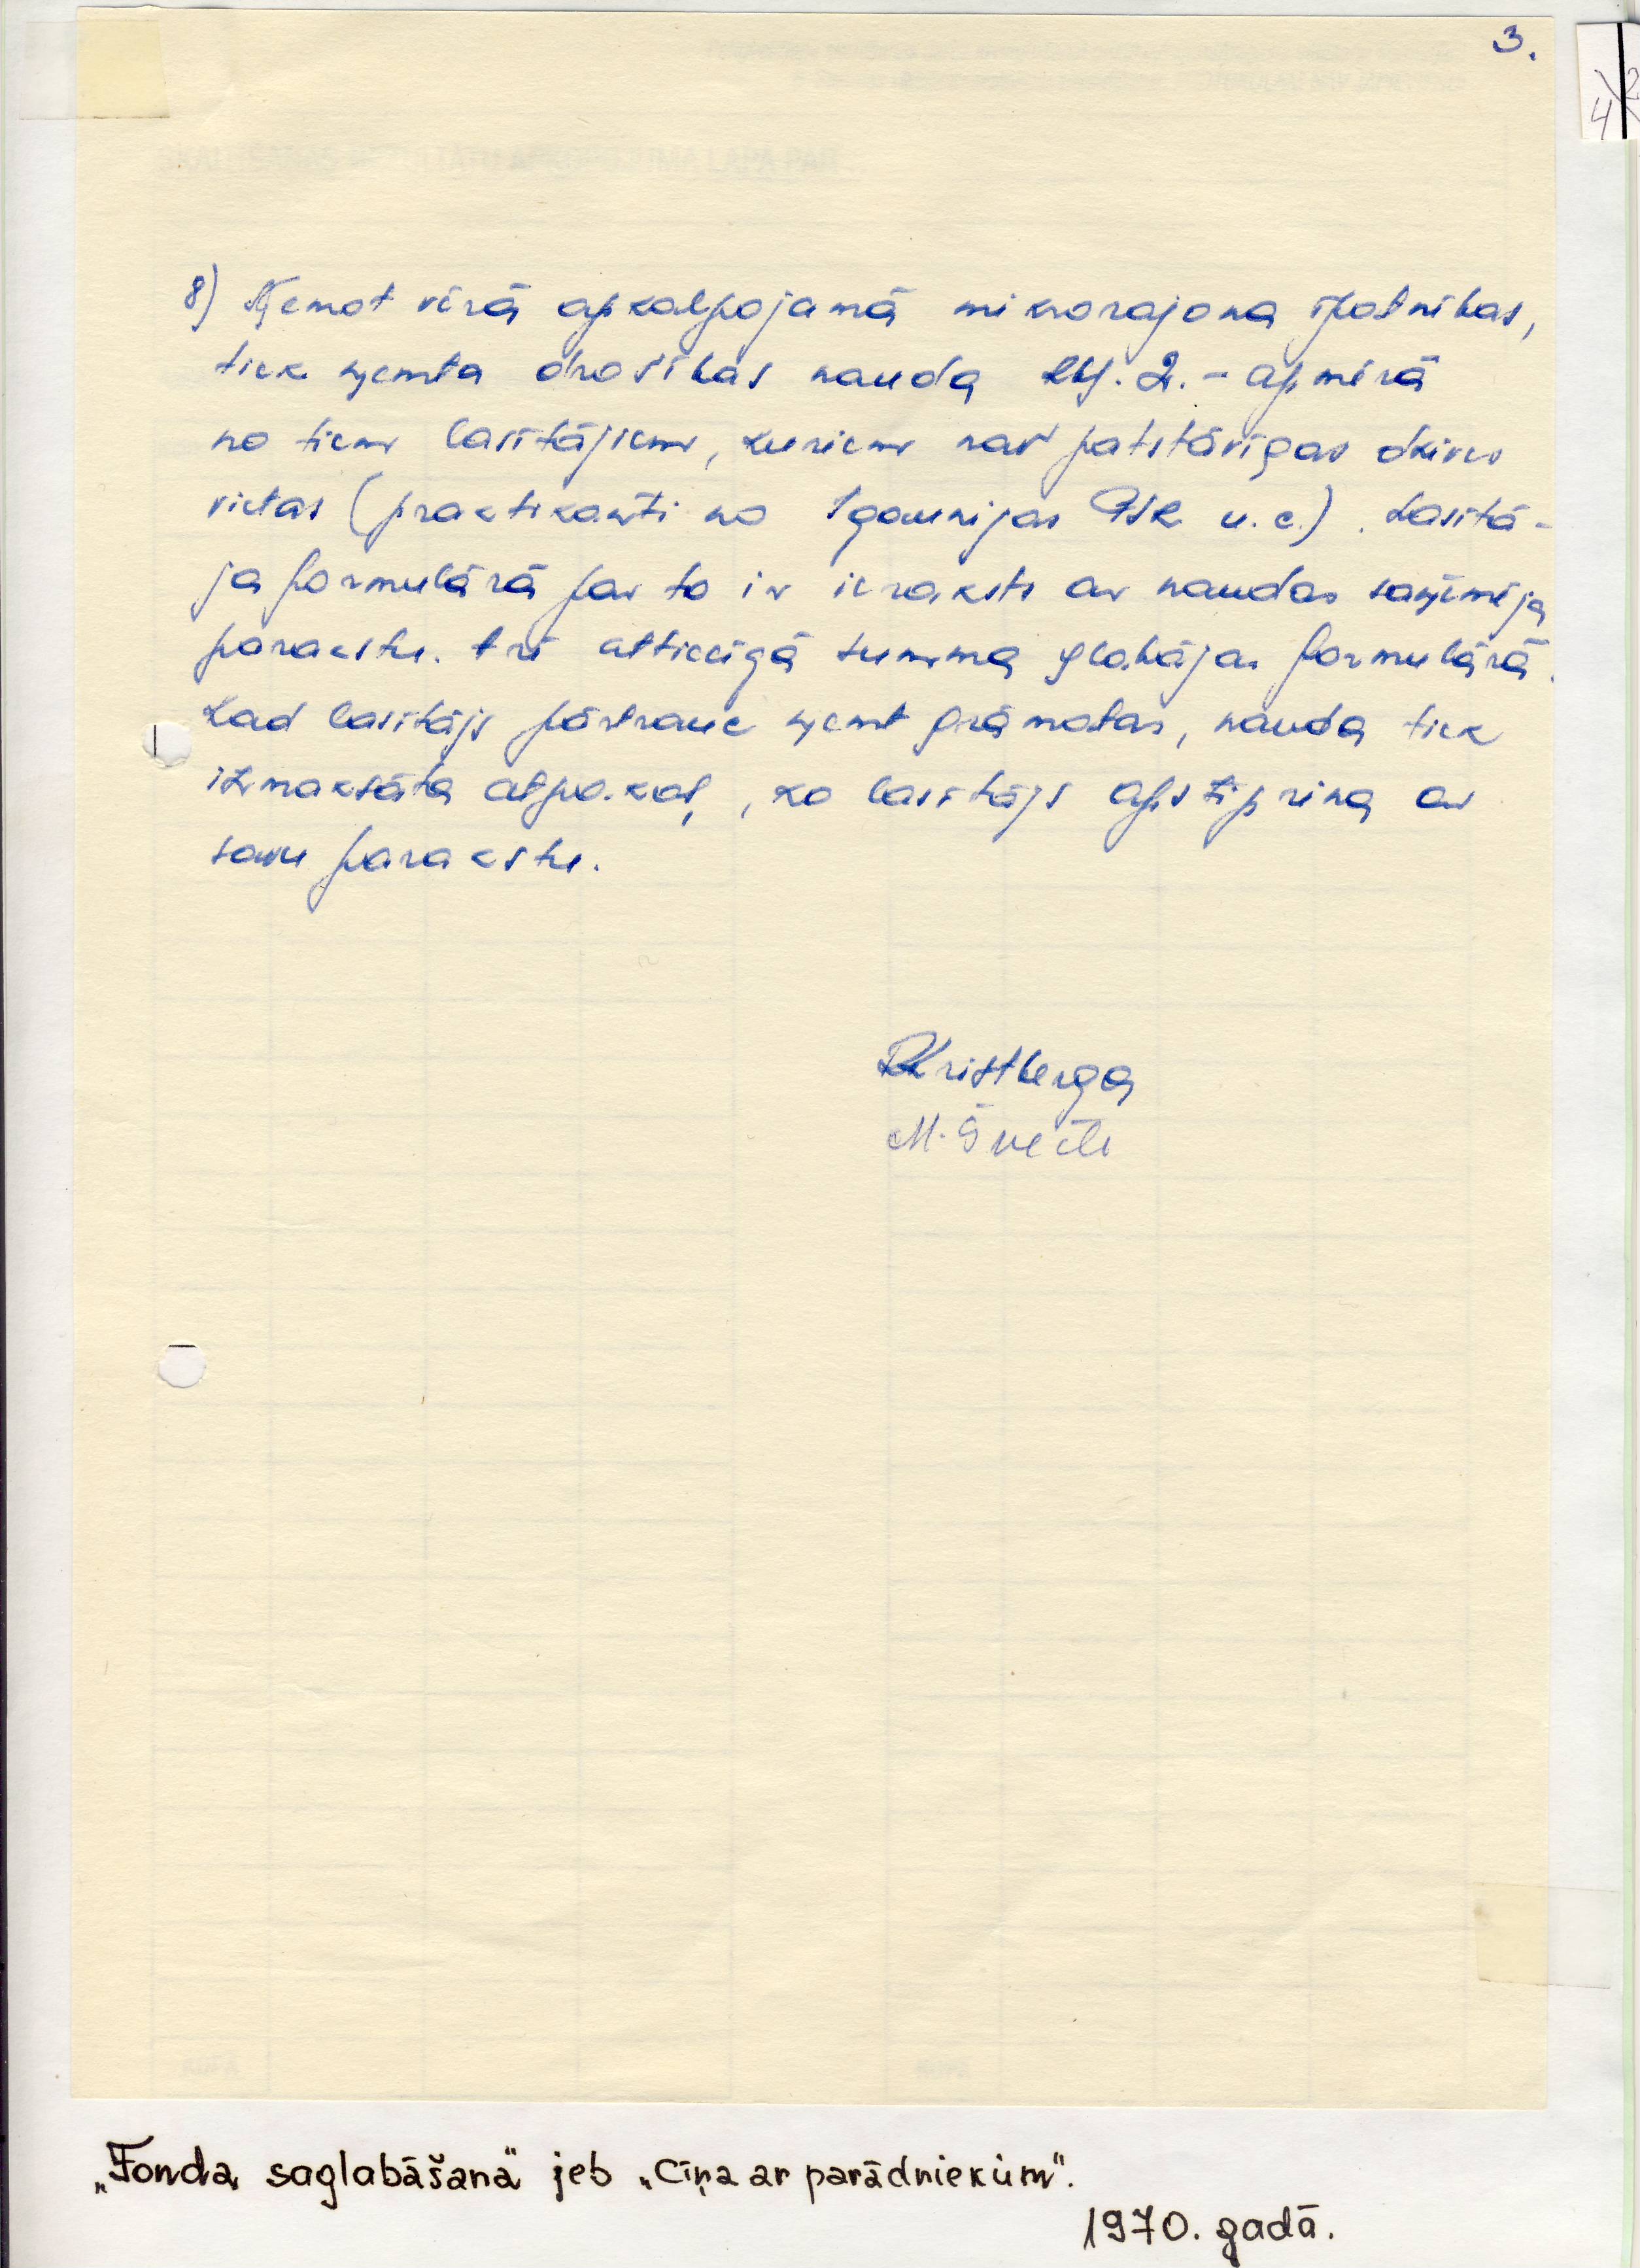 3.
8) Ņemot vērā apkalpojamā mikrorajona īpatnības,
tiek ņemta drošības nauda Rbļ. 2.- apmērā
no tiem lasītājiem, kuriem nav patstāvīgas dzives
vietas (praktikanti no Igaunijas PSR u.c.). Lasītā-
ja formulārā par to ir ieraksts ar naudas saņēmēja
parakstu. Arī attiecīgā summa glabājas formulārā.
Kad lasītājs pārtrauc ņemt grāmatas, nauda tiek
izmaksāta atpakaļ, ko lasītājs apstiprina ar
savu parakstu.
Kristberga
M. Šveile
"Fonda saglabāšana" jeb "Cīņa ar parādniekiem".
1970. gadā.